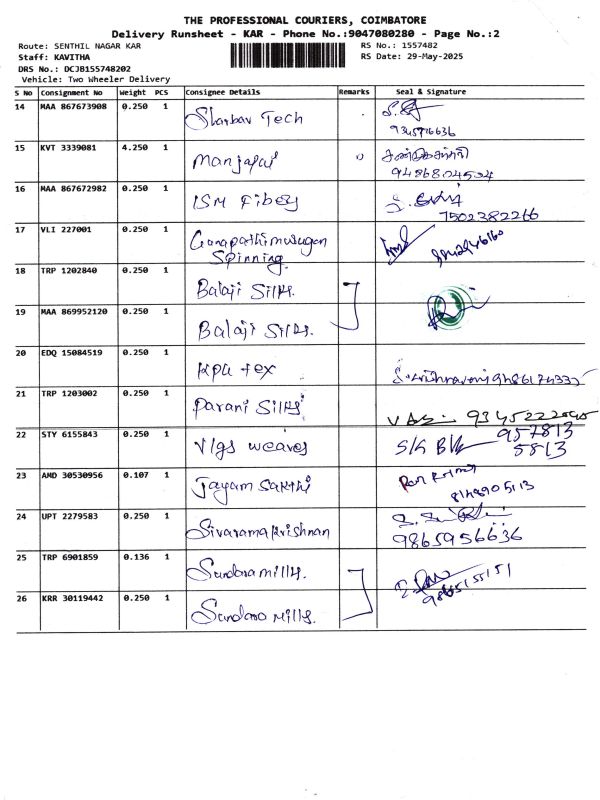 THE PROFESSIONAL COURIERS, COIMBATORE
Delivery Runsheet - KAR - Phone No.:9047080280 - Page No.:2
Route: SENTHIL NAGAR KAR RS No.: 1557482
Staff: KAVITHA RS Date: 29-May-2025
DRS No.: DCJB155748202
Vehicle: Two Wheeler Delivery
S No Consignment No Weight PCS Consignee Details Remarks Seal & Signature
14 MAA 867673908 0.250 1 Tech
15 KVT 3339081 4.250 1 Manjapai
9486804504
16 MAA 867672982 0.250 1 ISM Fibey
7502382266
17 VLI 227001 0.250 1 Ganapathimurugan
Spinning
18 TRP 1202840 0.250 1 Balaji Silks.
19 MAA 869952120 0.250 1 Balaji Silks.
20 EDQ 15084519 0.250 1 tex
21 TRP 1203002 0.250 1 Parani Silks
22 STY 6155843 0.250 1 Vlgs weaves 957813
5813
23 AMD 30530956 0.107 1 Jayam Sakthi
8148905113
24 UPT 2279583 0.250 1 Sivaramakrishnan
9865956636
25 TRP 6901859 0.136 1 Sundara mills.
9865155151
26 KRR 30119442 0.250 1 Sundara Mills.